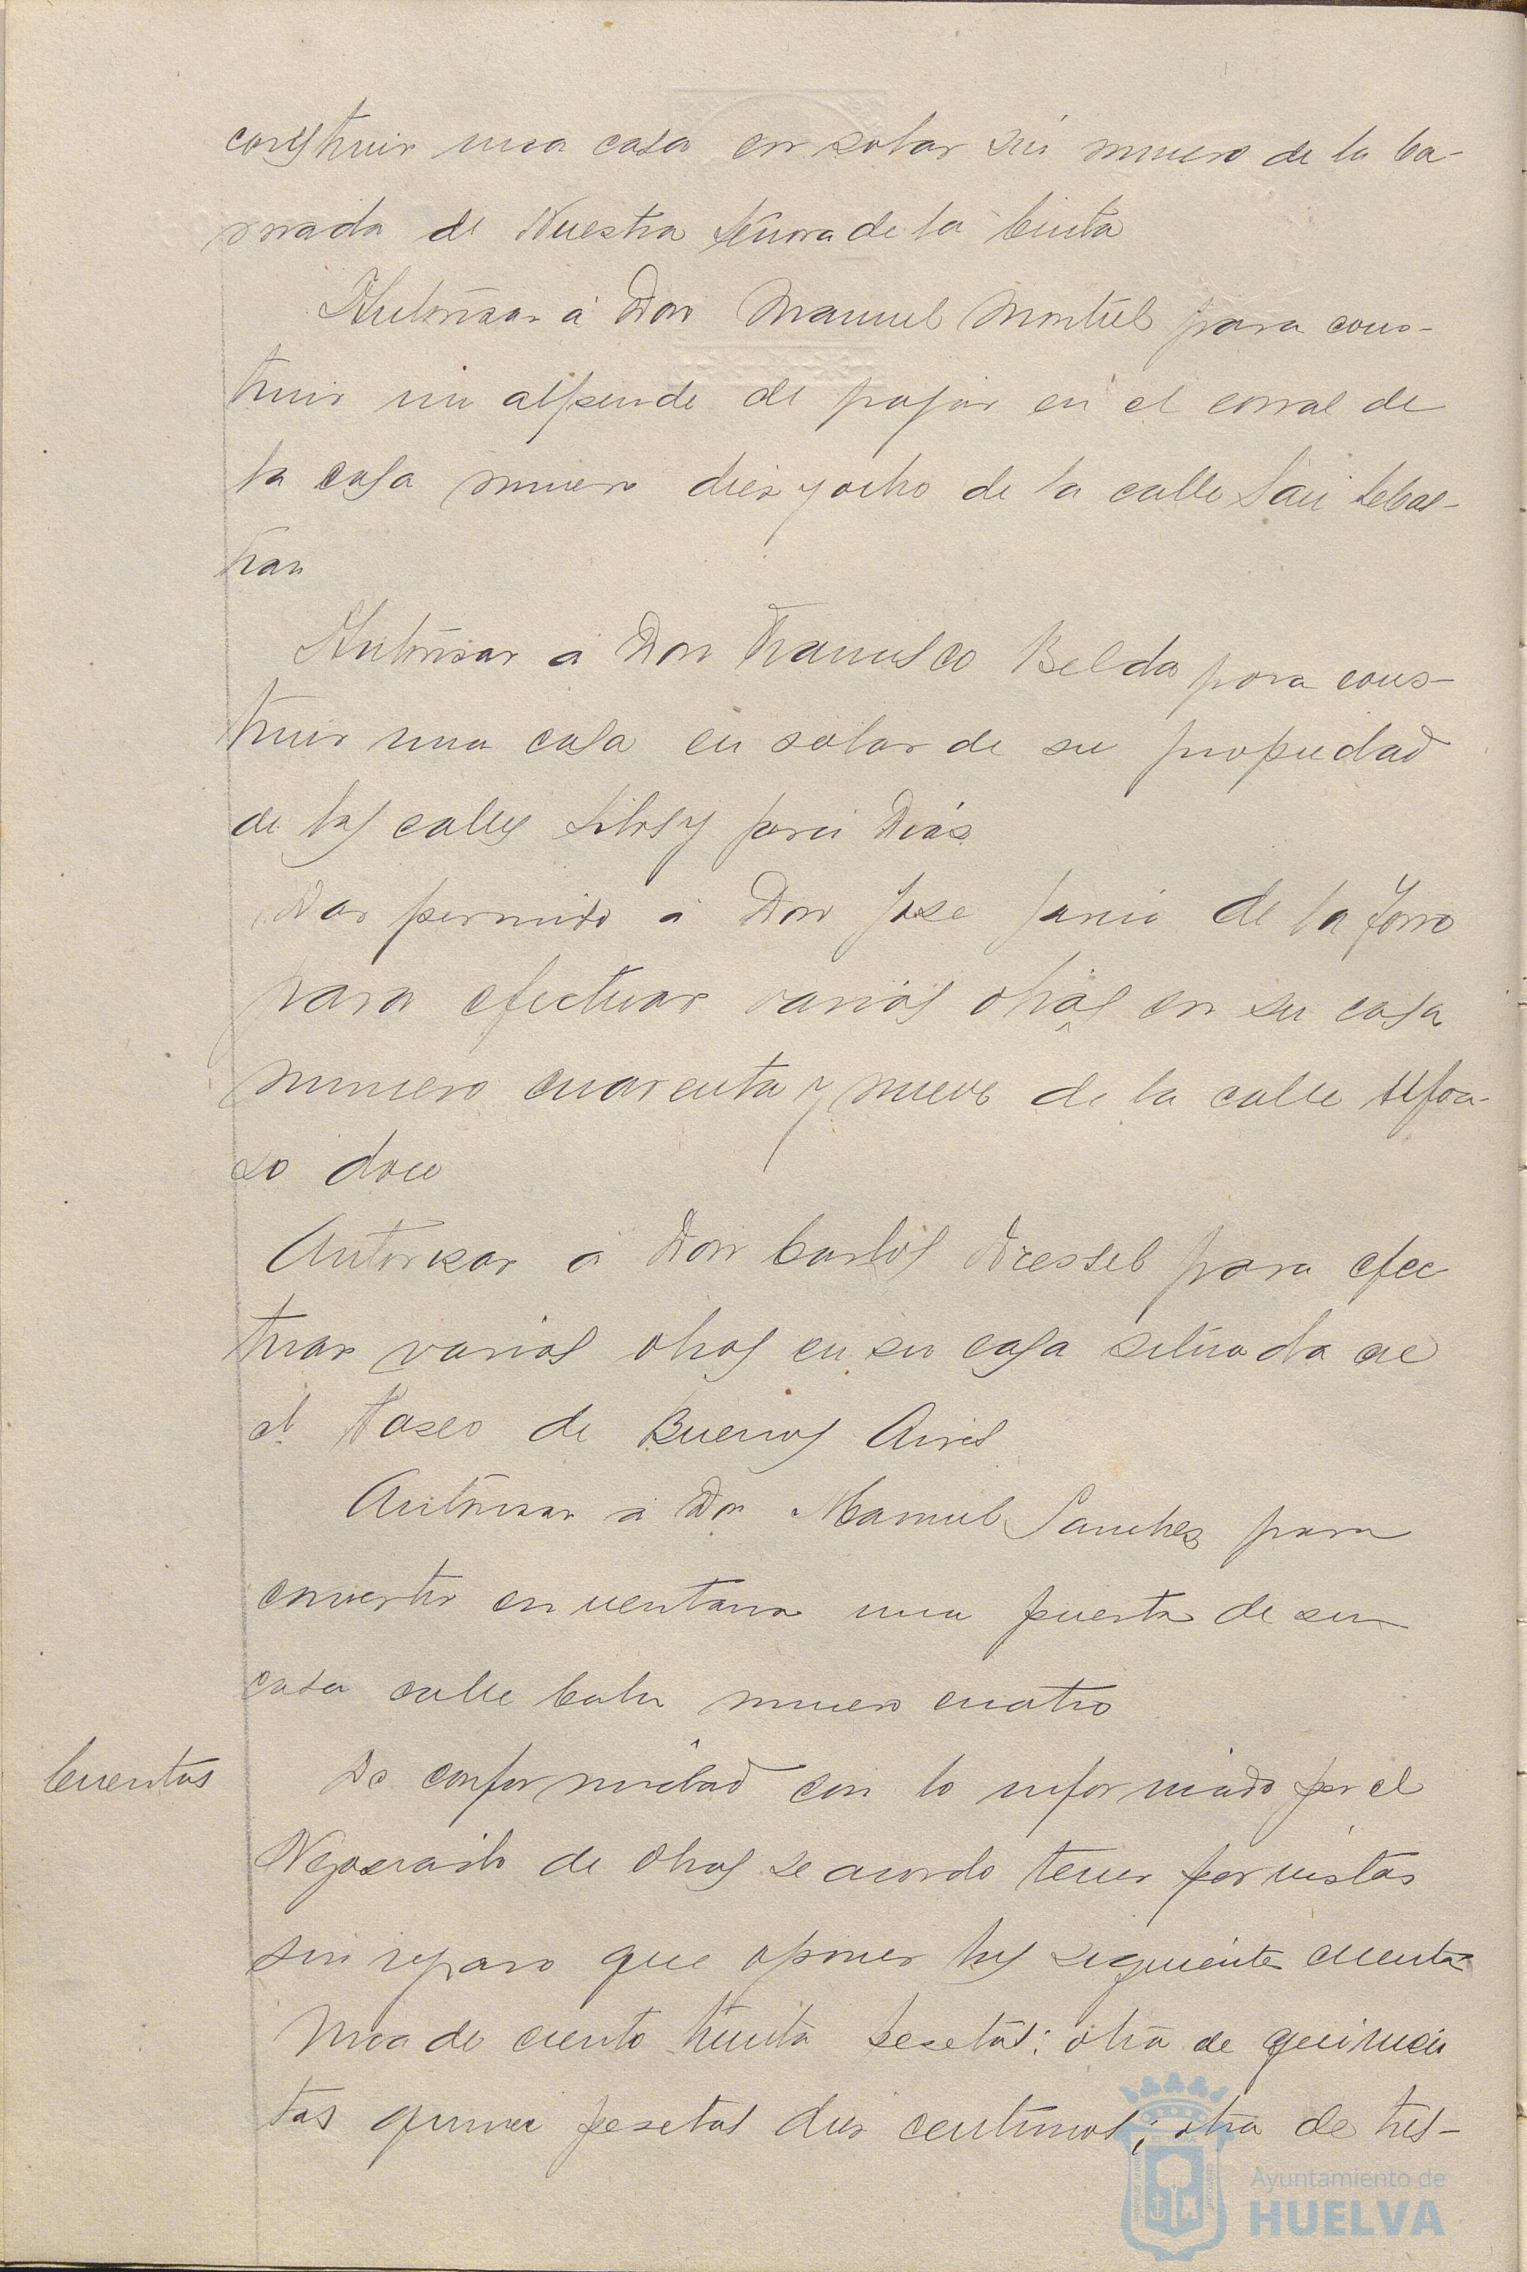 construir una casa en solar sin numero de la ba-
rriada de Nuestra Señora de la Cinta
Autorisar a Don Manuel Montiel para cons-
truir un alpende de pajar en el corral de
la casa numero diez y ocho de la calle San Sebas-
tian
Autorisar a Don Francisco Belda para cons-
truir una casa en solar de su propiedad
de las calles Silos y Diaz
Dar permiso a Don Jose Garcia de la Torre
para efectuar varias obras en su casa
numero cuarenta y nueve de la calle Alfon-
so doce
Autorizar a Don Carlos Dressel para efec
tuar varias obras en su casa situada en
el Paseo de Buenos Aires
Autorisar a Don Manuel Sanchez para
convertir en ventana una puerta de su
casa calle Cala numero cuatro
Cuentas
De conformidad con lo informado por el
Negociado de Obras se acordo tener por vistas
sin reparo que oponer las siguientes cuentas
Una de ciento treinta pesetas; otra de quinien
tas quince pesetas diez centimos; otra de tres-
Ayuntamiento de
HUELVA